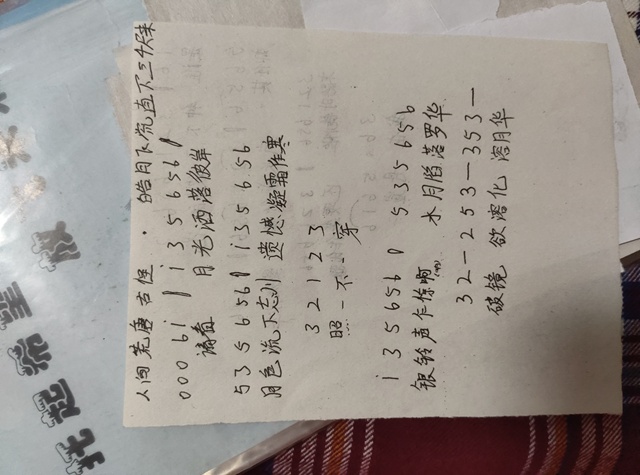 托起希望 放 未
人间荒唐古怪 . 皓月 流直下三千
000 6i | i 3 5 6 5 6 |
请看 月光洒落彼岸
5 3 5 6 5 6 | i 3 5 6 5 6
月色流下忘川 遗憾凝霜作寒
3 2 1 2 3
照一不 穿
i 3 5 6 5 6 | 5 3 5 6 5 6
银铃声乍 水月 落罗华
3 2 — 2 5 3 — 3 5 3 —
破镜 欲溶化 溶月华